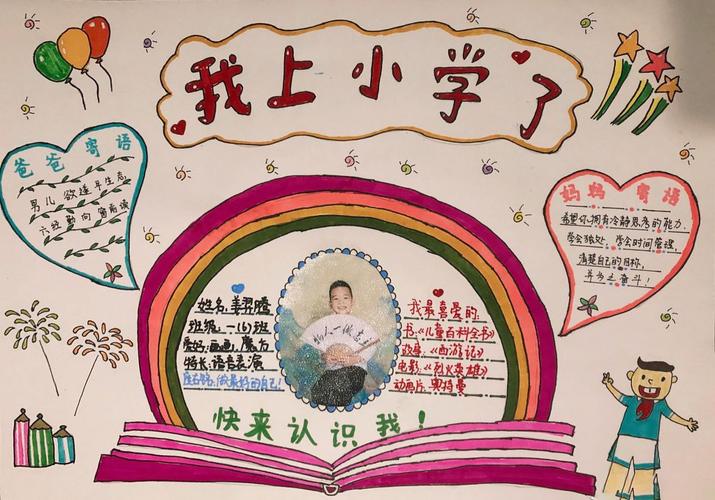 我上小学了
爸爸寄语
男儿欲遂平生志
六经勤向窗前读
妈妈寄语
希望你拥有冷静思考的能力,
学会独处、学会时间管理,
清楚自己的目标,
并为之奋斗!
姓名:姜羿腾
班级:一(6)班
爱好:画画、魔方
特长:语言表演
座右铭:做最好的自己!
我最喜爱的:
书:《儿童百科全书》
故事:《西游记》
电影:《烈火英雄》
动画片:奥特曼
快来认识我!